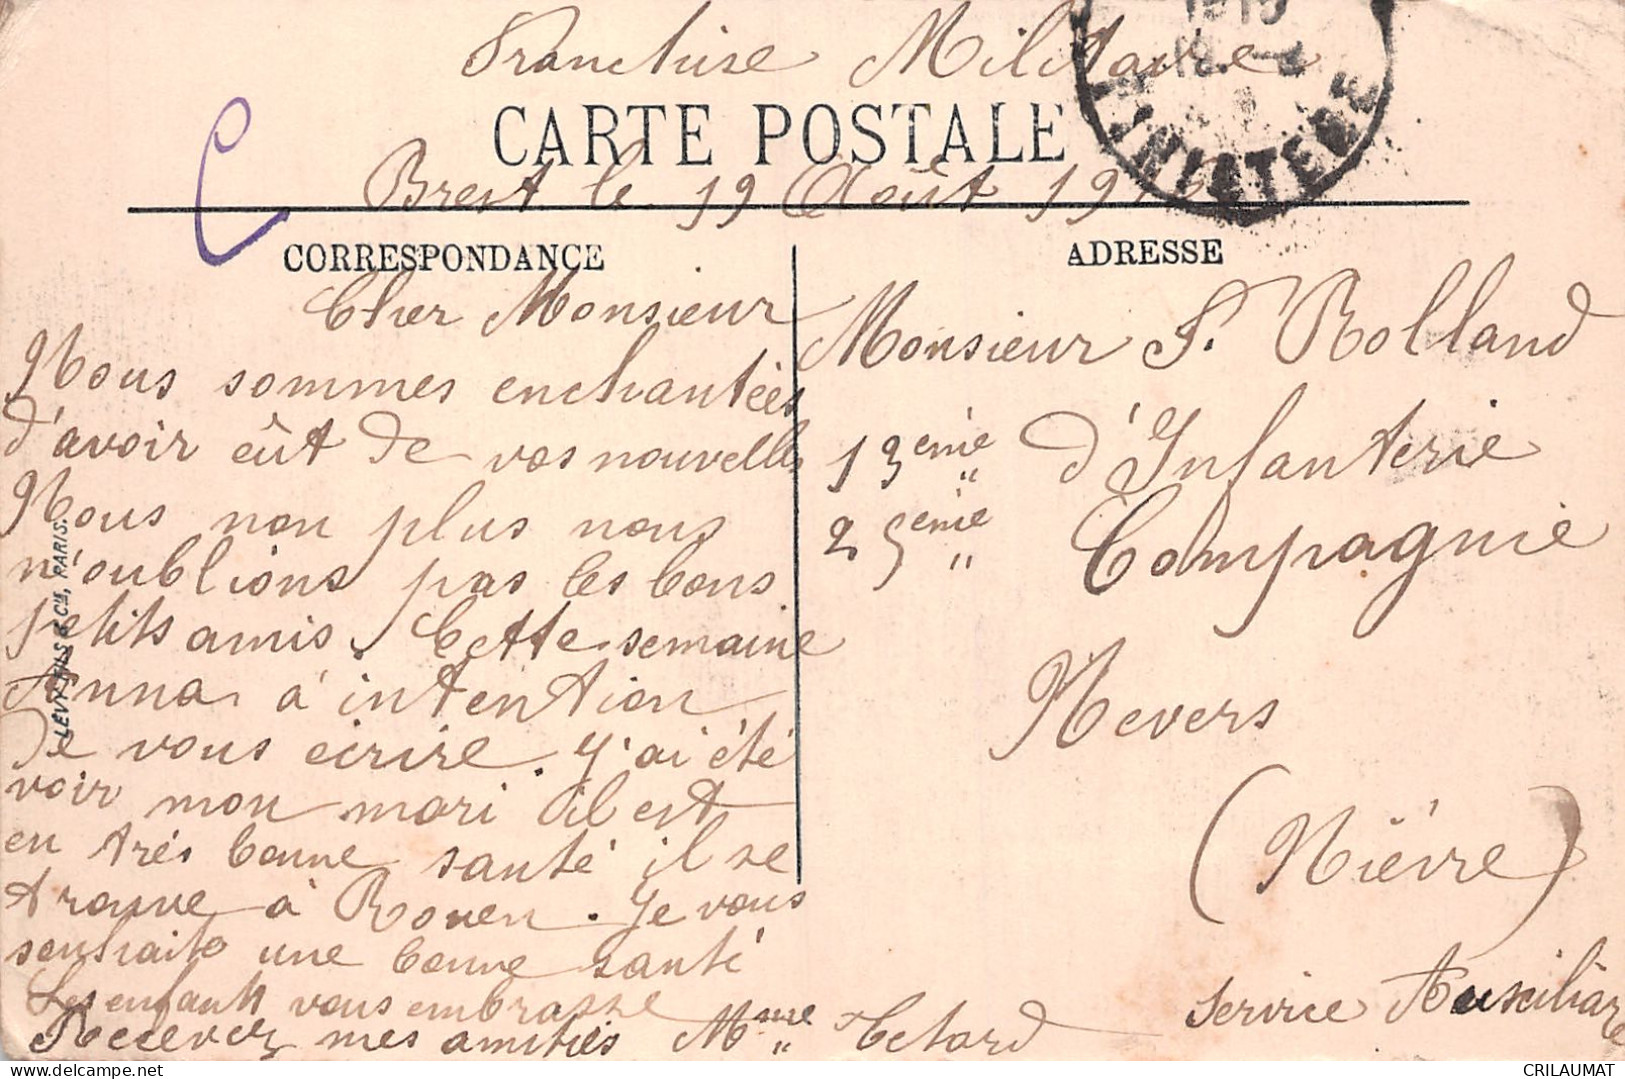 Franchise Militaire
CARTE POSTALE
Brest le 19 Août 191
FINISTERE
CORRESPONDANCE
ADRESSE
Cher Monsieur
Nous sommes enchantées
d'avoir eût de vos nouvelles
Nous non plus nous
n'oublions pas les bons
petits amis. Cette semaine
Anna à intention
de vous ecrire. J'ai été
voir mon mari il est
en trés bonne santé il se
trouve à Rouen. Je vous
souhaite une bonne santé
Les enfants vous embrasse
Recevez mes amitiés Mme Tetard
LEVY FILS & Cie, PARIS.
Monsieur F. Rolland
13eme d'Infanterie
25eme Compagnie
Nevers
(Niévre)
Service Auxiliaire
CRILAUMAT